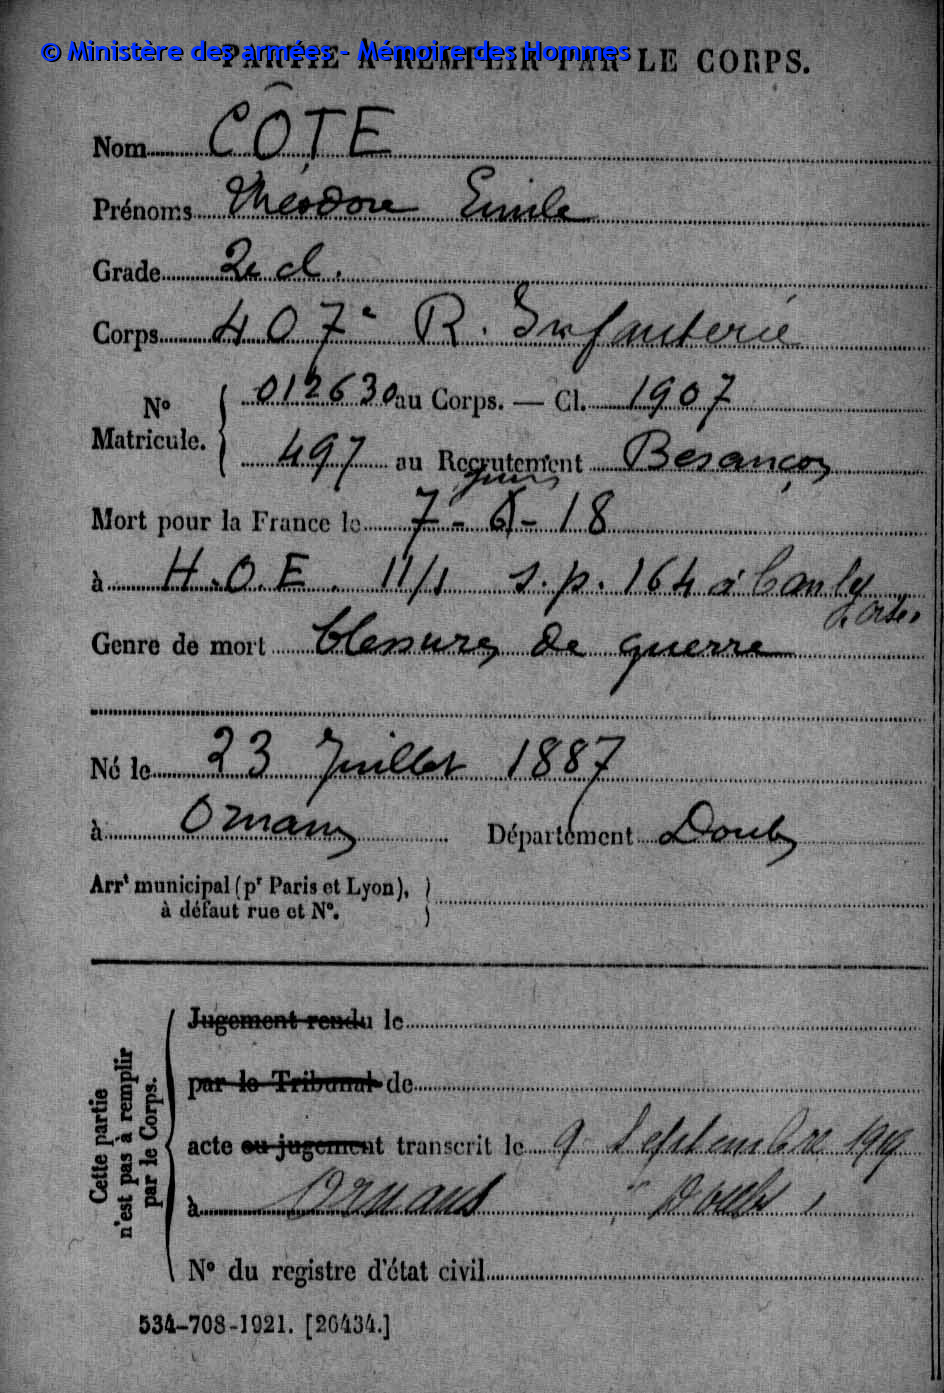 © Ministère des armées - Mémoire des Hommes
PARTIE À REMPLIR PAR LE CORPS.
Nom CÔTE
Prénoms Théodore Emile
Grade 2e cl.
Corps 407e R. Infanterie
No Matricule. 012630 au Corps. — Cl. 1907
497 au Recrutement Besançon
juin
Mort pour la France le 7 - 6 - 18
à H.O.E. 11/1 s.p. 164 à Canly
Oise
Genre de mort blessures de guerre
Né le 23 Juillet 1887
à Ornans Département Doubs
Arrt municipal (pr Paris et Lyon),
à défaut rue et No.
Cette partie n'est pas à remplir par le Corps.
Jugement rendu le
par le Tribunal de
acte ou jugement transcrit le 9 Septembre 1919
à Ornans Doubs
No du registre d'état civil
534-708-1921. [26434.]